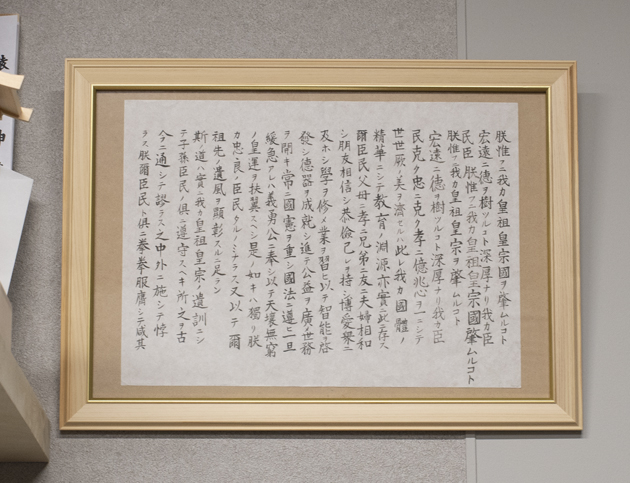 朕惟フニ我カ皇祖皇宗國ヲ肇ムルコト
宏遠ニ德ヲ樹ツルコト深厚ナリ我カ臣
民臣 朕惟フニ我カ皇祖皇宗國肇ムルコト
朕惟フニ我カ皇祖皇宗ヲ肇ムルコト
宏遠ニ德ヲ樹ツルコト深厚ナリ我カ臣
民克ク忠ニ克ク孝ニ億兆心ヲ一ニシテ
世世厥ノ美ヲ濟セルハ此レ我カ國體ノ
精華ニシテ教育ノ淵源亦實ニ此ニ存ス
爾臣民父母ニ孝ニ兄弟ニ友ニ夫婦相和
シ朋友相信シ恭儉己レヲ持シ博愛衆ニ
及ホシ學ヲ修メ業ヲ習ヒ以テ智能ヲ啓
發シ德器ヲ成就シ進テ公益ヲ廣メ世務
ヲ開キ常ニ國憲ヲ重シ國法ニ遵ヒ一旦
緩急アレハ義勇公ニ奉シ以テ天壤無窮
ノ皇運ヲ扶翼スヘシ是ノ如キハ獨リ朕
カ忠良ノ臣民タルノミナラス又以テ爾
祖先ノ遺風ヲ顯彰スルニ足ラン
斯ノ道ハ實ニ我カ皇祖皇宗ノ遺訓ニシ
テ子孫臣民ノ俱ニ遵守スヘキ所之ヲ古
今ニ通シテ謬ラス之中外ニ施シテ悖
ラス朕爾臣民ト俱ニ拳拳服膺シテ咸其